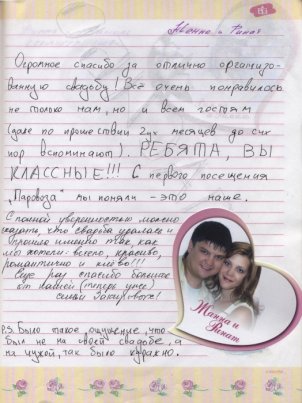 Жанна и Ринат
Огромное спасибо за отлично организо-
ванную свадьбу! Всё очень понравилось
не только нам, но и всем гостям
(даже по прошествии 2ух месяцев до сих
пор вспоминают). РЕБЯТА, ВЫ
КЛАССНЫЕ!!! С первого посещения
„Паровоза" мы поняли - это наше.
С полной уверенностью можно
сказать, что свадьба удалась и
прошла именно так, как
мы хотели - весело, красиво,
романтично и клёво!!!
Еще раз спасибо большое
от нашей (теперь уже)
семьи
Жанна и
Ринат
P.S. Было такое ощущение, что
был не на своей свадьбе, а
на чужой, так было куражно.